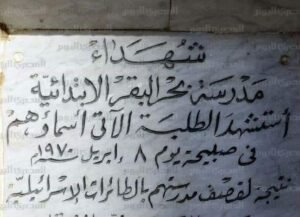 شهداء
مدرسة بحر البقر الابتدائية
أستشهد الطلبة الآتى أسماؤهم
فى صبيحة يوم ٨ إبريل ١٩٧٠
نتيجة لقصف مدرستهم بالطائرات الاسرائيلية